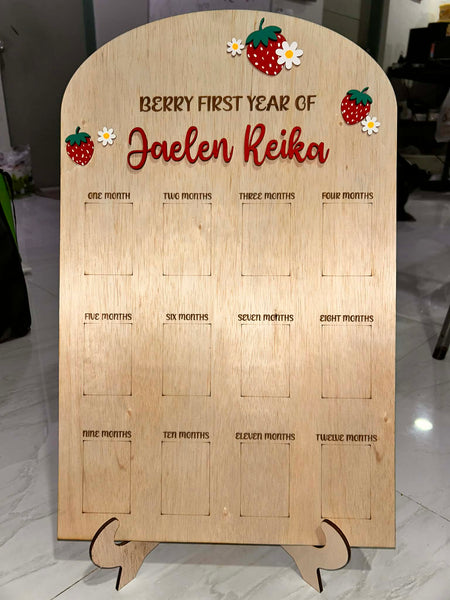 BERRY FIRST YEAR OF
Jaelen Reika
ONE MONTH TWO MONTHS THREE MONTHS FOUR MONTHS
FIVE MONTHS SIX MONTHS SEVEN MONTHS EIGHT MONTHS
NINE MONTHS TEN MONTHS ELEVEN MONTHS TWELVE MONTHS